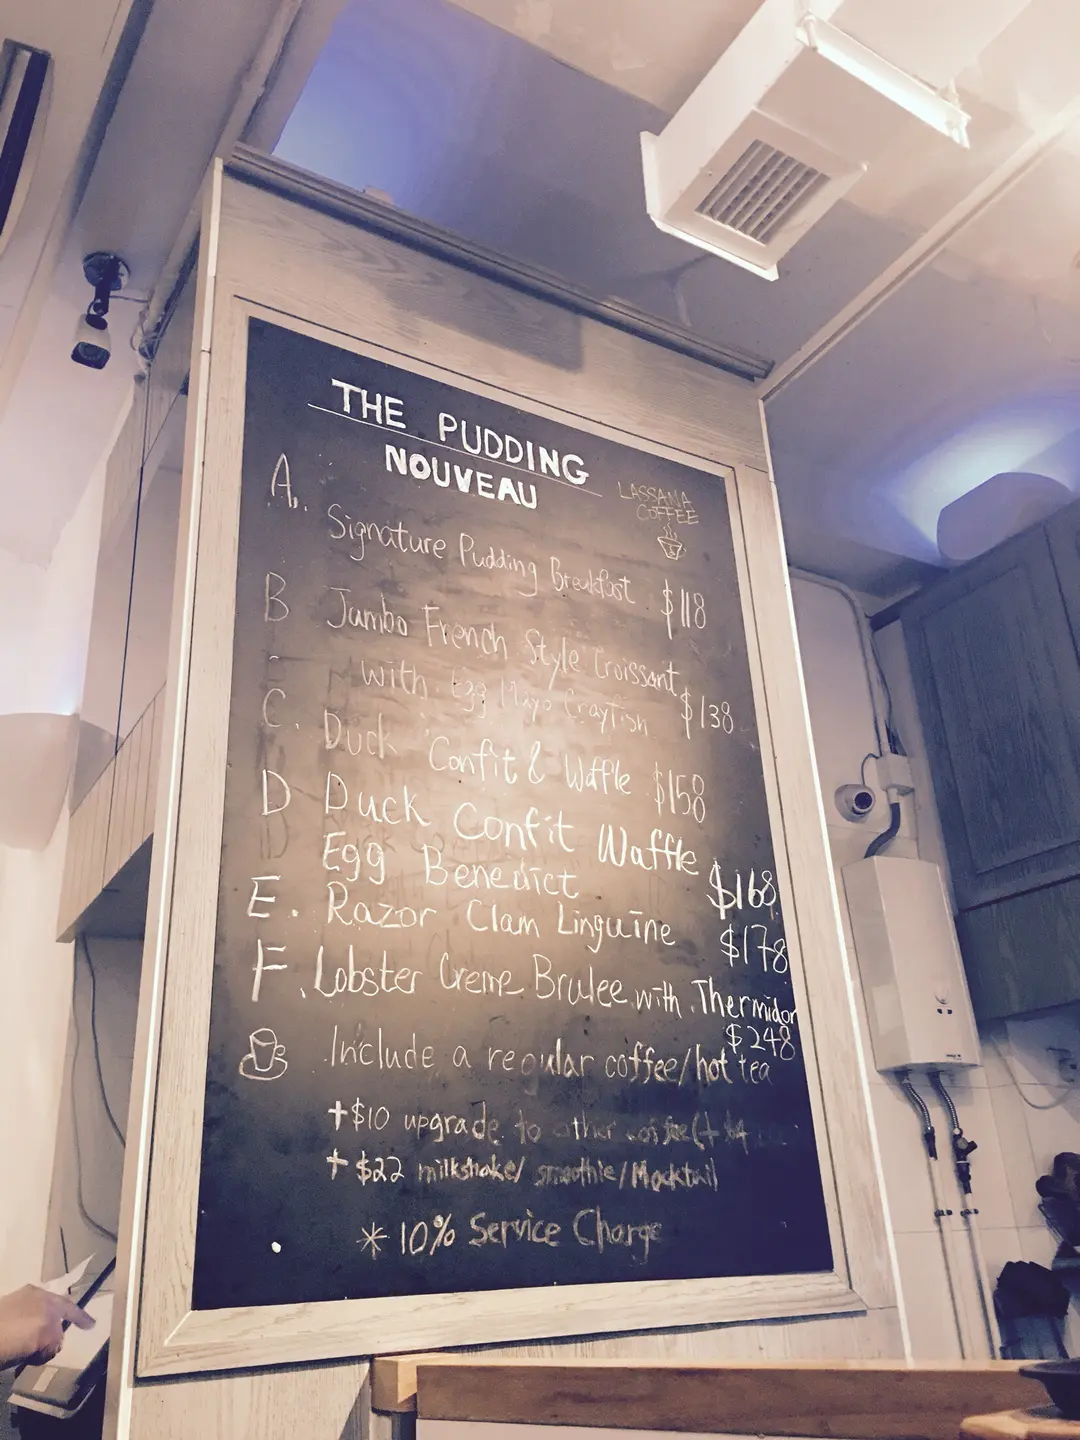 THE PUDDING
NOUVEAU
LASSANA
COFFEE
A.
Signature Pudding Breakfast $118
B Jambo French Style Croissant
with Egg Mayo Crayfish $138
C. Duck Confit & Waffle $158
D Duck Confit Waffle
Egg Benedict $168
E. Razor Clam Linguine $178
F. Lobster Creme Brulee with Thermidor
$248
Include a regular coffee/hot tea
+$10 upgrade to other coffee (+ $4
+ $22 milkshake/ smoothie/Mocktail
* 10% Service Charge